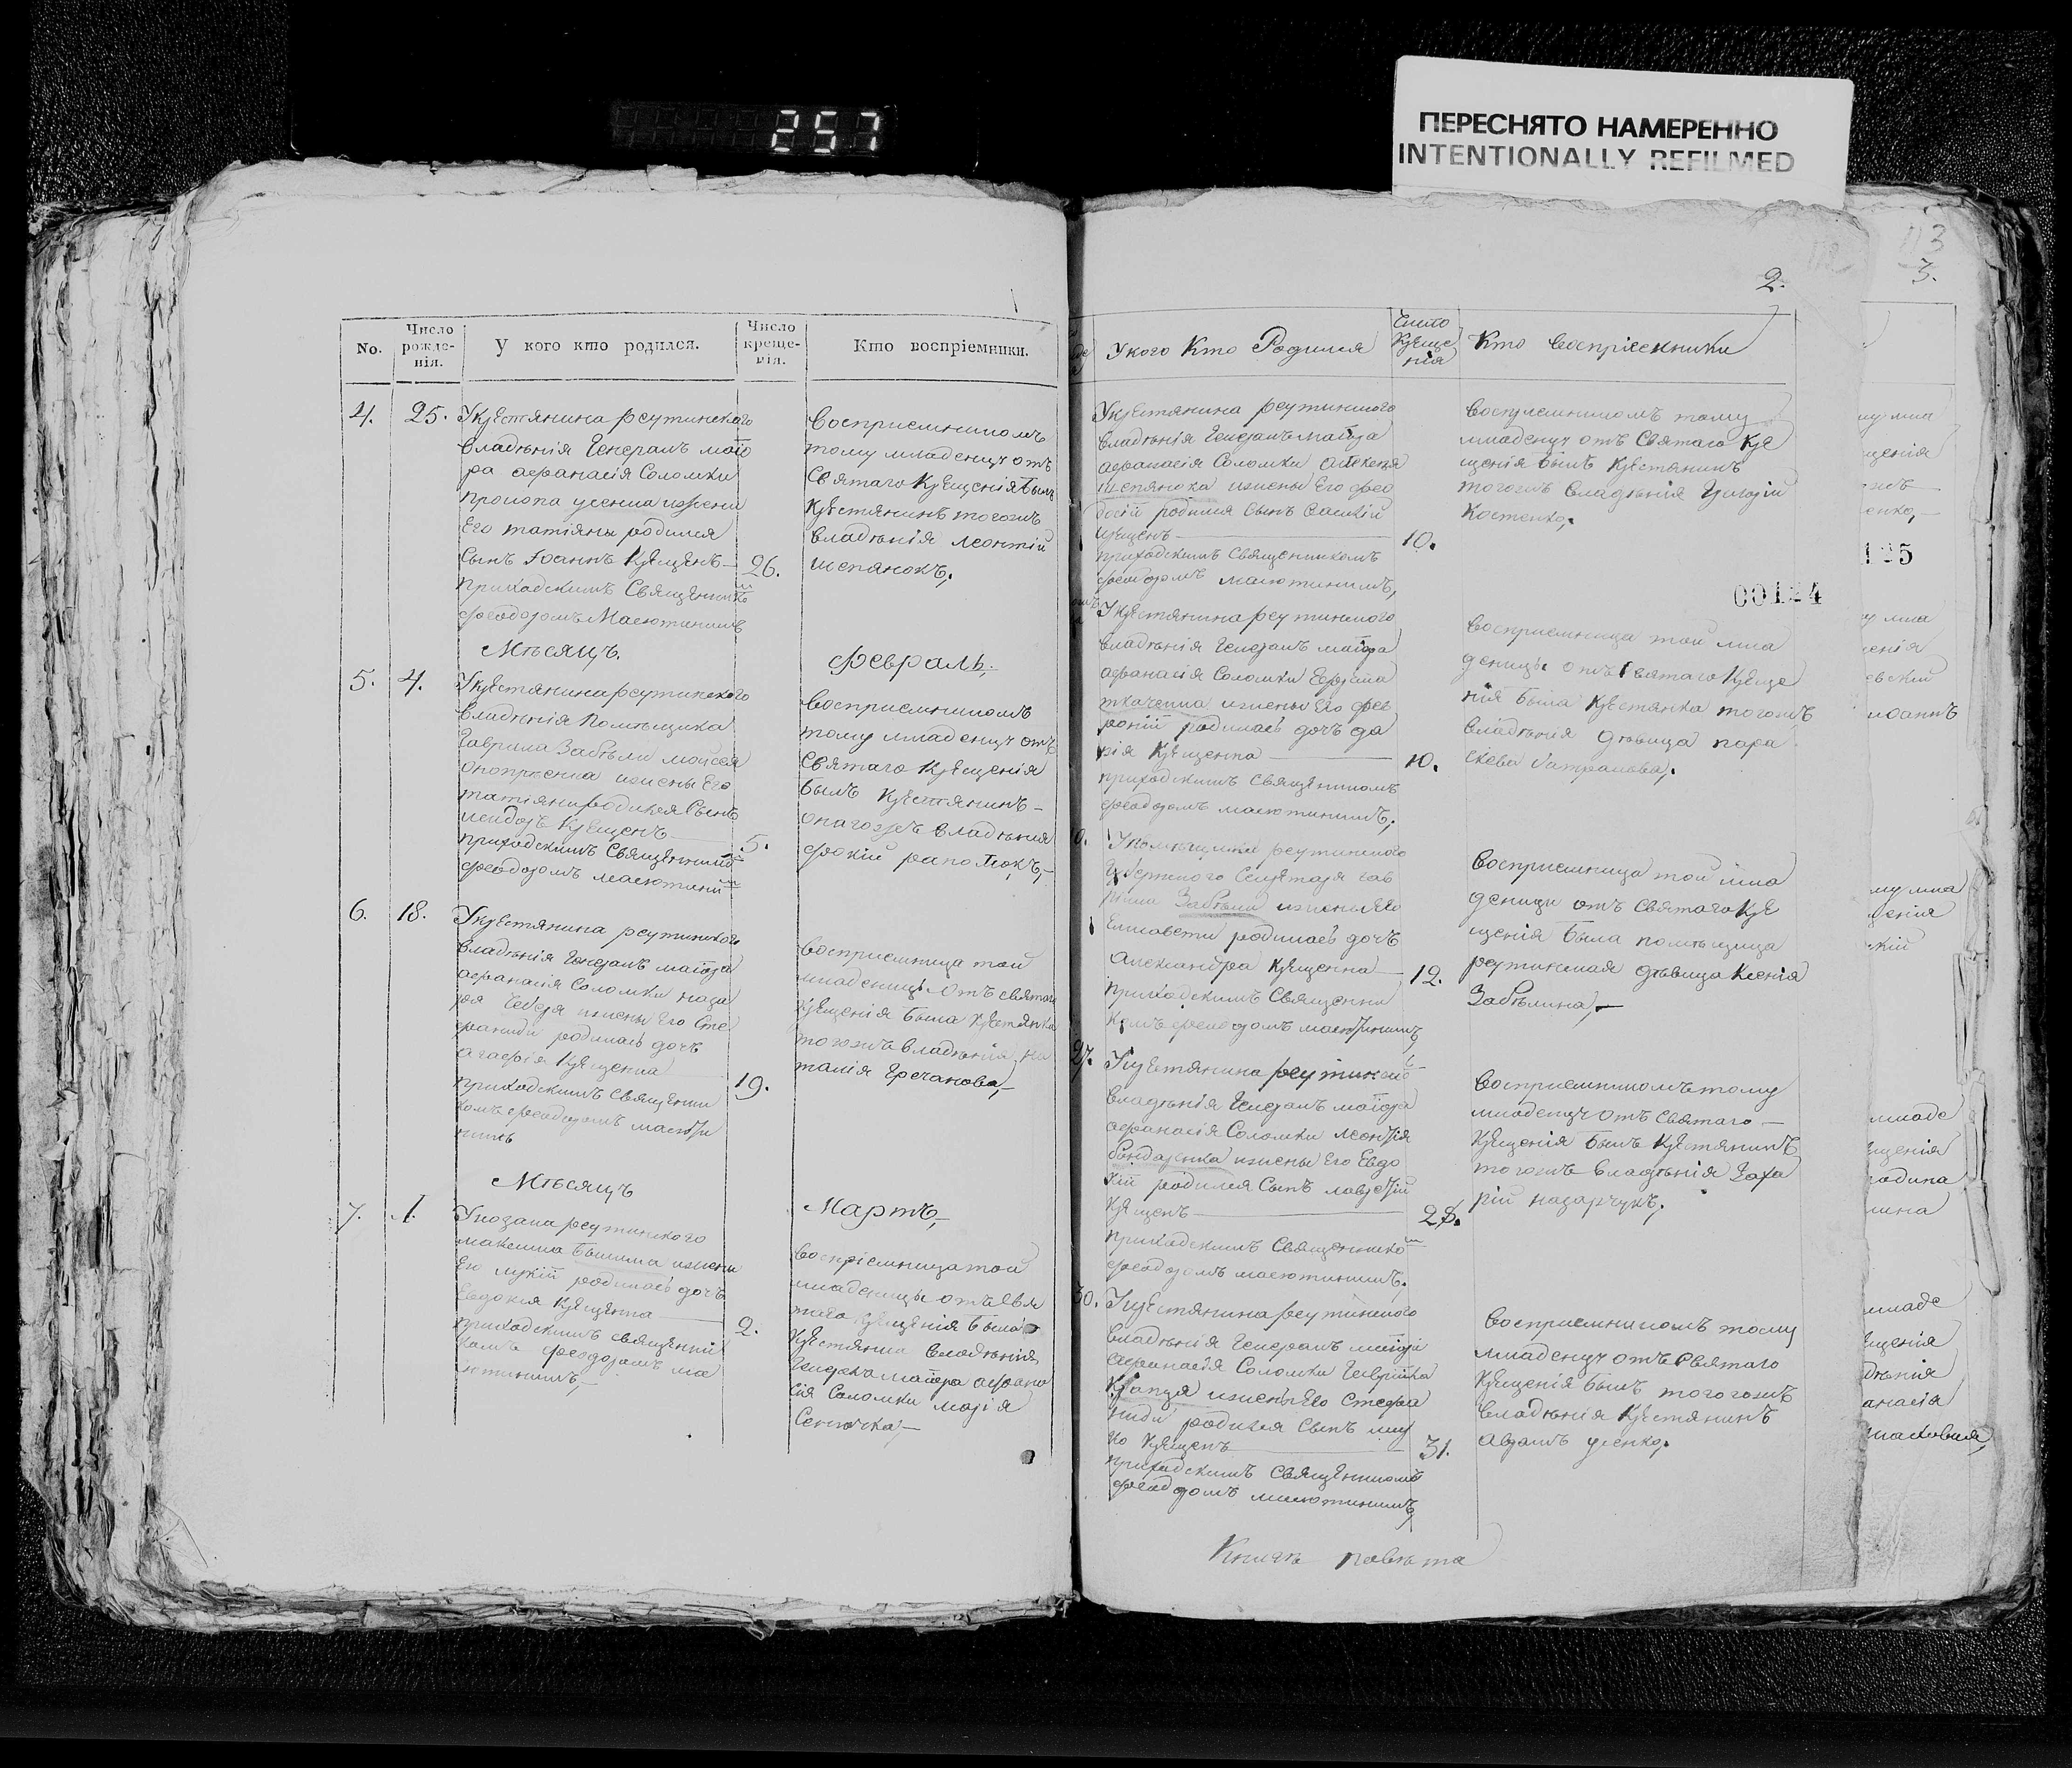 257
ПЕРЕСНЯТО НАМЕРЕННО
INTENTIONALLY REFILMED
No.
Число
рожде-
нія.
У кого кто родился.
Число
креще-
нія.
Кто воспріемники.
4.
25.
У крестянина реутинского
владѣнія Генералъ маіо
ра афанасія Соломки
прокопа усенка изжени
Его татіяны родился
сынъ Іоаннъ Крещенъ
приходскимъ Священнико
феодоромъ Масютинимъ
26.
восприемникомъ
тому младенцу отъ
Святаго Крещенія былъ
Крестянинъ тогожъ
владѣнія леонтій
шепянокъ,
Мѣсяцъ.
февраль.
5.
4.
У крестянина реутинского
владѣнія помѣщика
Гаврила Забѣли мойсея
онопрѣенка изжены Его
татіяни родился Сынъ
исидоръ Крещенъ
приходскимъ Священнико
феодоромъ масютини
5.
восприемникомъ
тому младенцу отъ
Святаго Крещенія
былъ Крестянинъ
онагожъ владѣния
фокій
6.
18.
У крестянина реутинского
владѣнія Генералъ маіора
афанасія Соломки наза
рія изжены Его Сте
фаниди родилась дочь
агафія Крещенна
приходскимъ Священни
комъ феодоромъ масюти
нимъ
19.
восприемница той
младеници отъ святаго
Крещенія была Крестянка
тогожъ владѣнія на
талія Гречанова,
Мѣсяцъ
Мартъ,
7.
1.
У козака реутинского
максима изжени
Его лукіи родилась дочь
Евдокия Крещенна
приходскимъ священни
комъ феодоромъ ма
сютинимъ,
2.
воспріемница той
младеници отъ Свя
таго Крещенія была
Крестянка владѣнія
Генералъ маіора афана
сія Соломки марія
2.
У кого Кто Родился
Число
Креще
нія
Кто воспріемники
У крестянина реутинского
владѣнія Генералъ маіора
афанасія Соломки алексея
шепянока изжены Его фео
досіи родился Сынъ Василій
Крещенъ
приходскимъ Священникомъ
феодоромъ масютинимъ,
10.
восприемникомъ тому
младенцу отъ Святаго Кре
щенія былъ Крестянинъ
тогожъ владѣнія Григорій
Костенко,
00124
У крестянина реутинского
владѣнія Генералъ маіора
афанасія Соломки Ефрема
ткаченка изжены Его фев
роніи родилась дочь да
рія Крещенна
приходскимъ Священникомъ
феодоромъ масютинимъ,
10.
восприемница той мла
деницы отъ Святаго Креще
нія была Крестянка тогожъ
владѣнія дѣвица пара
скева
0.
У помѣщика реутинского
Губернского Секретаря гав
рила Забѣли изжены Его
Елисавети родилась дочь
Александра Крещенна
приходскимъ Священни
комъ феодоромъ масютинимъ,
12.
восприемница той мла
деници отъ Святаго Кре
щенія была помѣщица
реутинская дѣвица Ксенія
Забѣлина,
27.
У крестянина реутинского
владѣнія Генералъ маіора
афанасія Соломки леонтія
бондаренка изжены Его Евдо
кіи родился Сынъ лаврентій
Крещенъ
приходскимъ Священнико
феодоромъ масютинимъ,
28.
восприемникомъ тому
младенцу отъ Святаго
Крещенія былъ Крестянинъ
тогожъ владѣнія Заха
рій назарчукъ,
30.
У крестянина реутинского
владѣнія Генералъ маіора
афанасія Соломки
изжены Его Стефа
ниди родился Сынъ
Крещенъ
приходскимъ Священникомъ
феодоромъ масютинимъ,
31.
восприемникомъ тому
младенцу отъ Святаго
Крещенія былъ тогожъ
владѣнія Крестянинъ
усенко,
3.